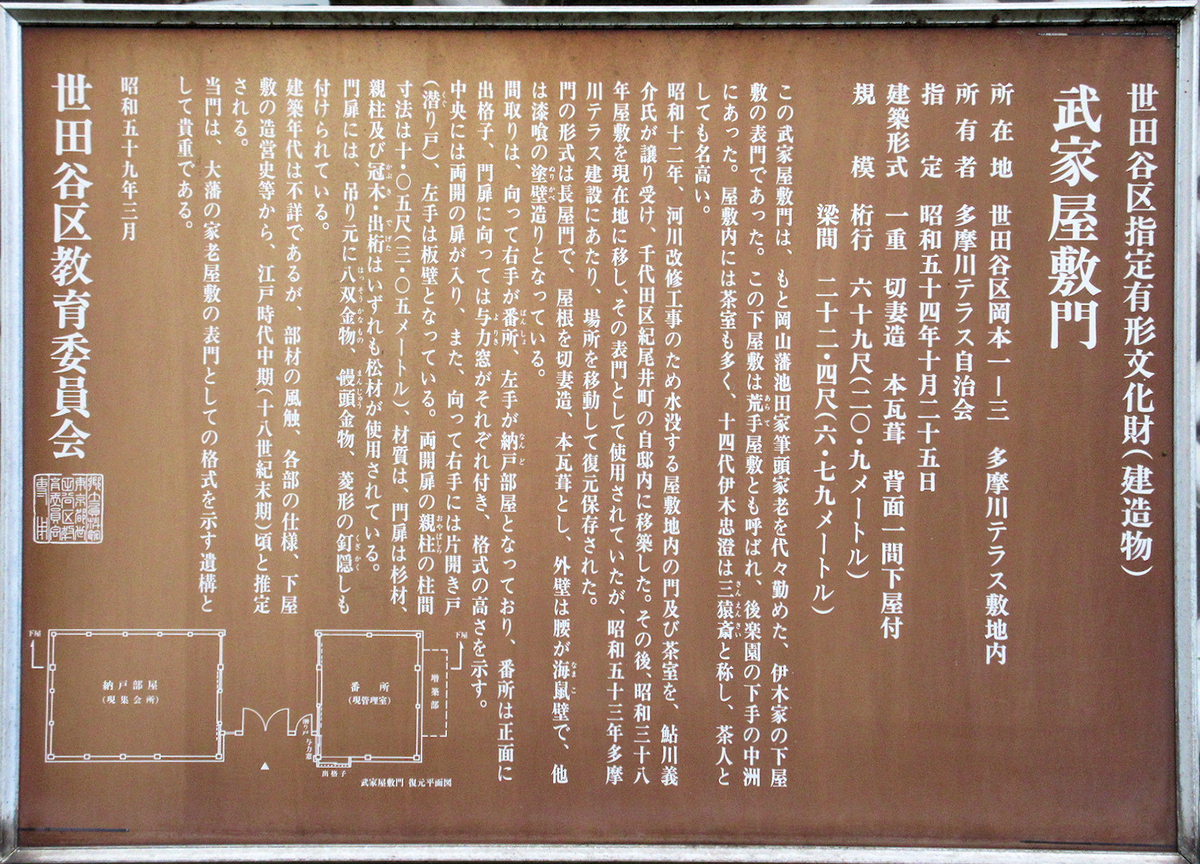 世田谷区指定有形文化財(建造物)
武家屋敷門
所在地　世田谷区岡本一―三　多摩川テラス敷地内
所有者　多摩川テラス自治会
指定　昭和五十四年十月二十五日
建築形式　一重　切妻造　本瓦葺　背面一間下屋付
規模　桁行　六十九尺(二〇・九メートル)
梁間　二十二・四尺(六・七九メートル)
この武家屋敷門は、もと岡山藩池田家筆頭家老を代々勤めた、伊木家の下屋
敷の表門であった。この下屋敷は荒手屋敷とも呼ばれ、後楽園の下手の中洲
にあった。屋敷内には茶室も多く、十四代伊木忠澄は三猿斎と称し、茶人と
しても名高い。
昭和十二年、河川改修工事のため水没する屋敷地内の門及び茶室を、鮎川義
介氏が譲り受け、千代田区紀尾井町の自邸内に移築した。その後、昭和三十八
年屋敷を現在地に移し、その表門として使用されていたが、昭和五十三年多摩
川テラス建設にあたり、場所を移動して復元保存された。
門の形式は長屋門で、屋根を切妻造、本瓦葺とし、外壁は腰が海鼠壁で、他
は漆喰の塗壁造りとなっている。
間取りは、向って右手が番所、左手が納戸部屋となっており、番所は正面に
出格子、門扉に向っては与力窓がそれぞれ付き、格式の高さを示す。
中央には両開の扉が入り、また、向って右手には片開き戸
(潜り戸)、左手は板壁となっている。両開扉の親柱の柱間
寸法は十・〇五尺(三・〇五メートル)、材質は、門扉は杉材、
親柱及び冠木・出桁はいずれも松材が使用されている。
門扉には、吊り元に八双金物、饅頭金物、菱形の釘隠しも
付けられている。
建築年代は不詳であるが、部材の風触、各部の仕様、下屋
敷の造営史等から、江戸時代中期(十八世紀末期)頃と推定
される。
当門は、大藩の家老屋敷の表門としての格式を示す遺構と
して貴重である。
昭和五十九年三月
世田谷区教育委員会
下屋
納戸部屋
(現集会所)
潜り戸
与力窓
番所
(現管理室)
増築部
下屋
出格子
武家屋敷門　復元平面図